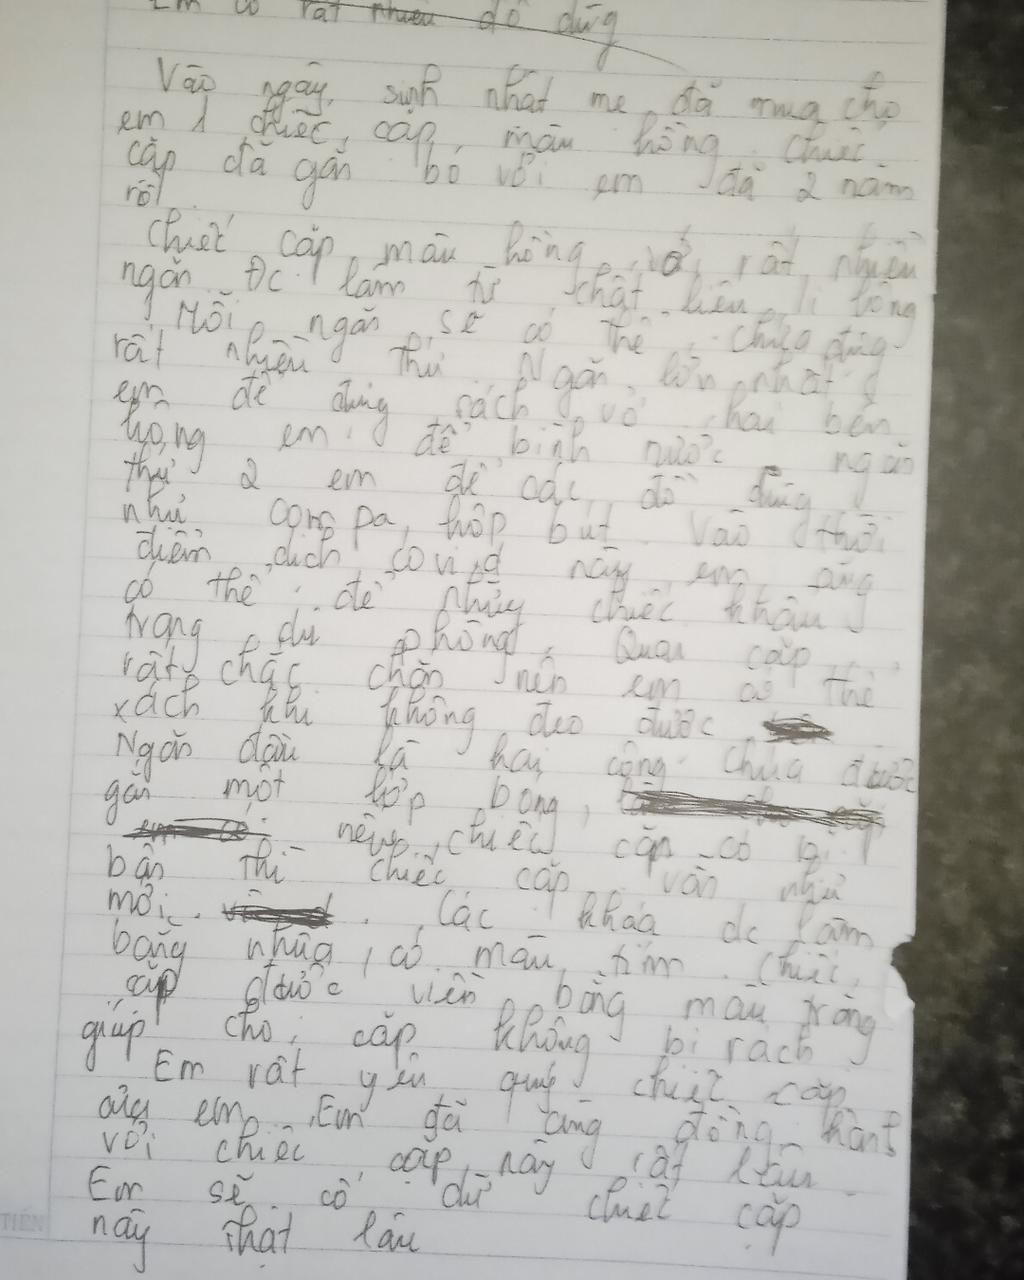 Em có rất nhiều đồ dùng
Vào ngày sinh nhật mẹ đã mua cho
em 1 chiếc cặp màu hồng. Chiếc
cặp đã gắn bó với em đã 2 năm
rồi.
Chiếc cặp màu hồng, có rất nhiều
ngăn. Đc làm từ chất liệu li lông
Mỗi ngăn sẽ có thể chứa đựng
rất nhiều thứ. Ngăn lớn nhất
em để đựng sách vở hai bên
hông em để bình nước ngăn
thứ 2 em để các đồ dùng
như compa, hộp bút. Vào thời
điểm dịch covid này em cũng
có thể để những chiếc khẩu
trang dự phòng. Quai cặp
rất chắc chắn nên em có thể
xách khi không đeo được
Ngăn đầu là hai công chúa được
gắn một lớp bóng,
nếu chiếc cặp có bị
bẩn thì chiếc cặp vẫn như
mới. Các khóa dc làm
bằng nhựa, có màu tím. Chiếc
cặp được viền bằng màu trắng
giúp cho cặp không bị rách
Em rất yêu quý chiếc cặp
của em. Em đã cùng đồng hành
với chiếc cặp này rất lâu.
Em sẽ cố giữ chiếc cặp
này thật lâu
TIẾN